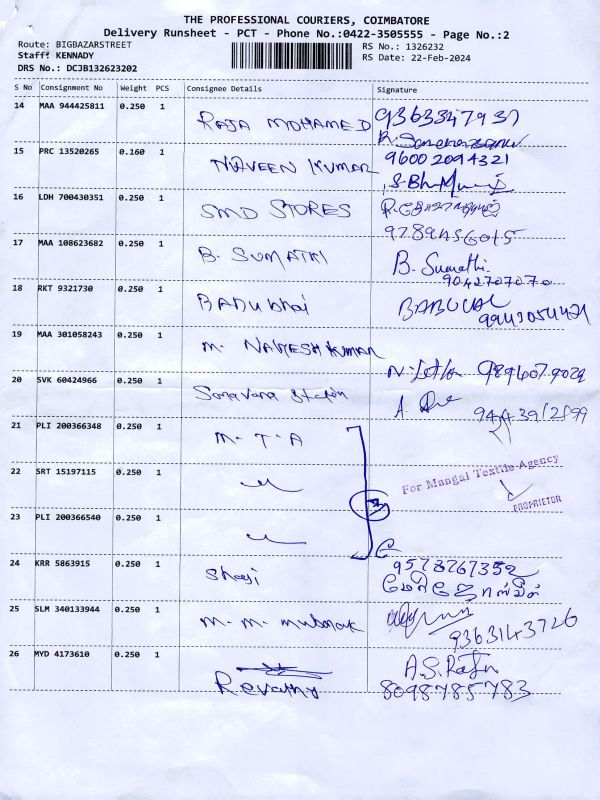 THE PROFESSIONAL COURIERS, COIMBATORE
Delivery Runsheet - PCT - Phone No.:0422-3505555 - Page No.:2
Route: BIGBAZARSTREET
Staff: KENNADY
DRS No.: DCJB132623202
RS No.: 1326232
RS Date: 22-Feb-2024
S No Consignment No Weight PCS Consignee Details Signature
14 MAA 944425811 0.250 1 RAJA MOHAMED 9363347937
15 PRC 13520265 0.160 1 NAVEEN KUMAR 96002094321
16 LDH 700430351 0.250 1 SMD STORES
9789456015
17 MAA 108623682 0.250 1 B. SUMATHI B. Sumathi
9042707070
18 RKT 9321730 0.250 1 BABU bhai BABULAL
19 MAA 301058243 0.250 1 M. NARESH KUMAR
9894079029
20 SVK 60424966 0.250 1 Saravana station
21 PLI 200366348 0.250 1 M-T-A
22 SRT 15197115 0.250 1 For Mangal Textile Agency
PROPRIETOR
23 PLI 200366540 0.250 1
24 KRR 5863915 0.250 1 Shaji 9578267352
25 SLM 340133944 0.250 1 M. M. Mubarak
9363143726
26 MYD 4173610 0.250 1 Revathy A.S. Raju
8098785783